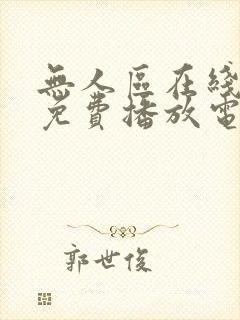 無人區在綫
免費播放電
郭世俊